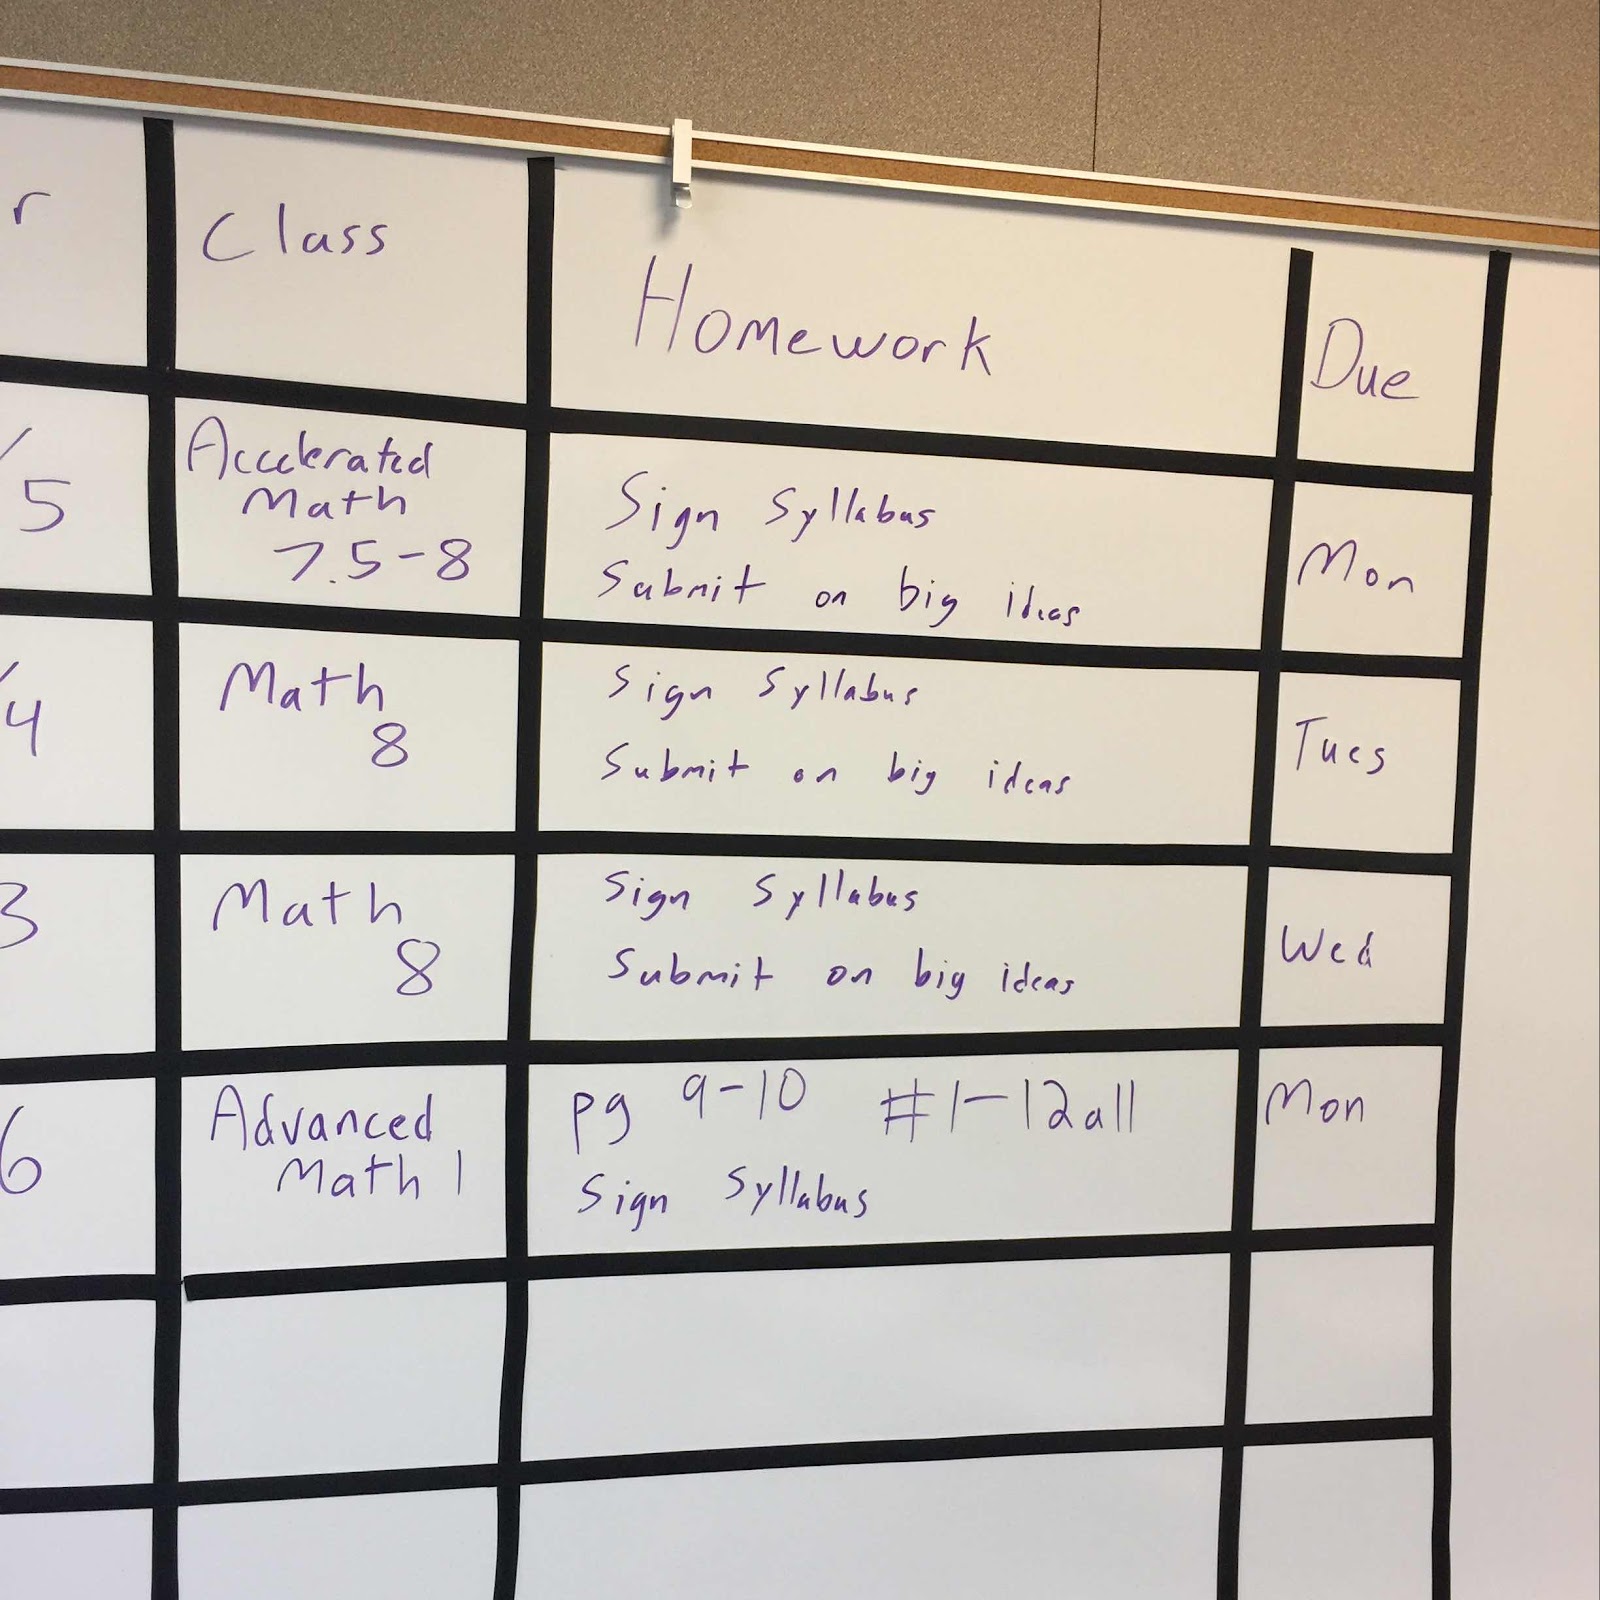 r Class Homework Due
/5 Accelerated Math 7.5-8 Sign Syllabus Mon
Submit on big ideas
/4 Math 8 Sign Syllabus Tues
Submit on big ideas
3 Math 8 Sign Syllabus Wed
Submit on big ideas
6 Advanced Math 1 pg 9-10 #1-12 all Mon
Sign Syllabus